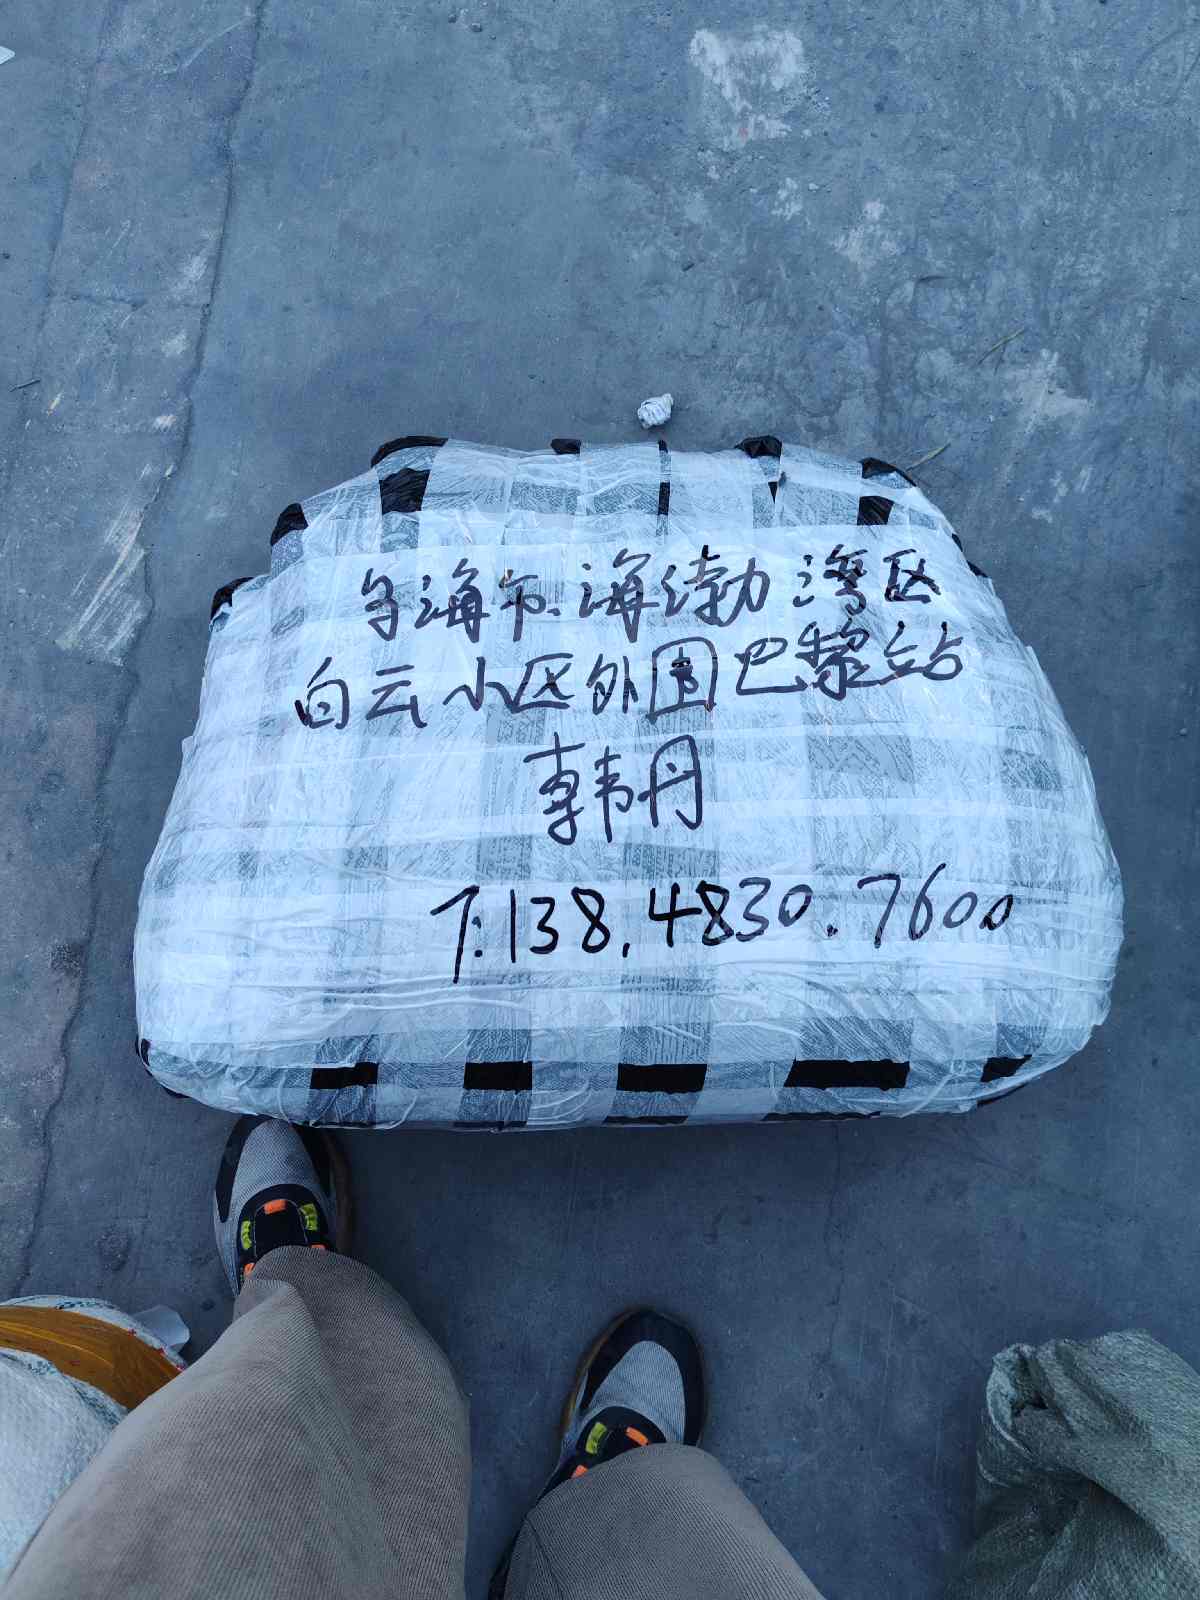 乌海市.海勃湾区
白云小区外围巴黎站
韩丹
T:138.4830.7600